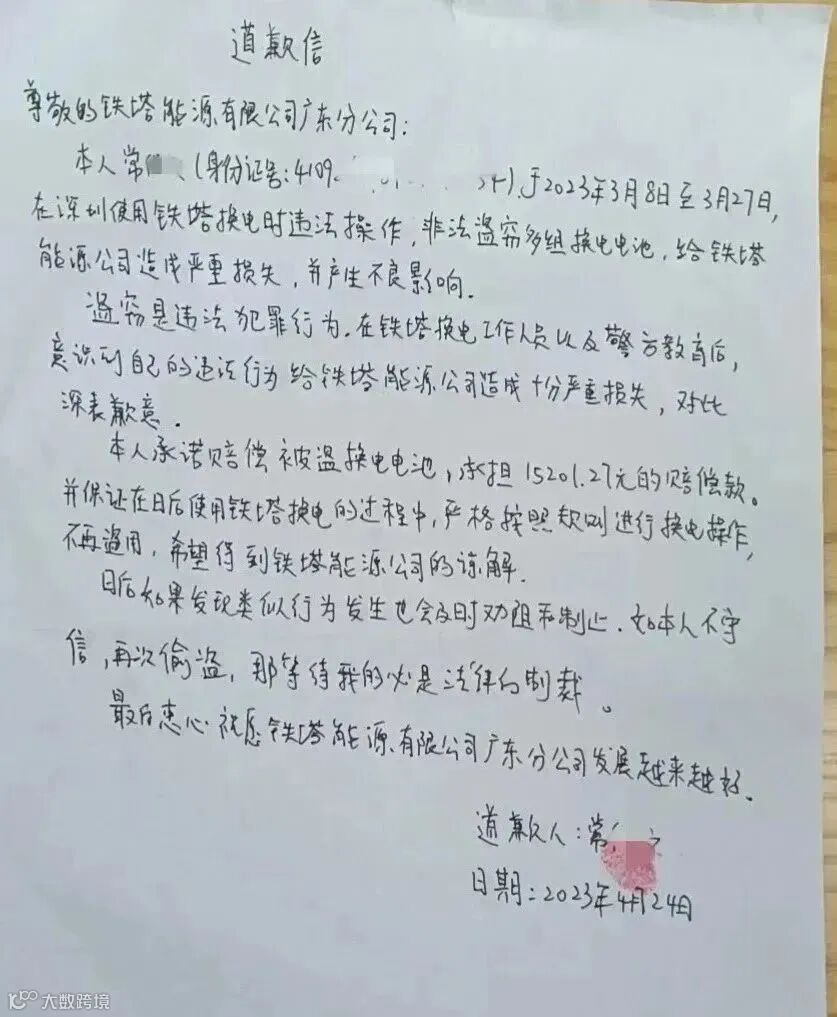 道歉信
尊敬的铁塔能源有限公司广东分公司：
本人常 (身份证号:4109 24),于2023年3月8日至3月27日,
在深圳使用铁塔换电时违法操作,非法盗窃多组换电电池,给铁塔
能源公司造成严重损失,并产生不良影响.
盗窃是违法犯罪行为.在铁塔换电工作人员以及警方教育后,
意识到自己的违法行为给铁塔能源公司造成十分严重损失,对此
深表歉意.
本人承诺赔偿被盗换电电池,承担15201.27元的赔偿款。
并保证在日后使用铁塔换电的过程中,严格按照规则进行换电操作,
不再盗用,希望得到铁塔能源公司的谅解.
日后如果发现类似行为发生也会及时劝阻和制止.如本人不守
信,再次偷盗,那等待我的必是法律的制裁。
最后衷心祝愿铁塔能源有限公司广东分公司发展越来越好.
道歉人:常
日期:2023年4月24日
大数跨境